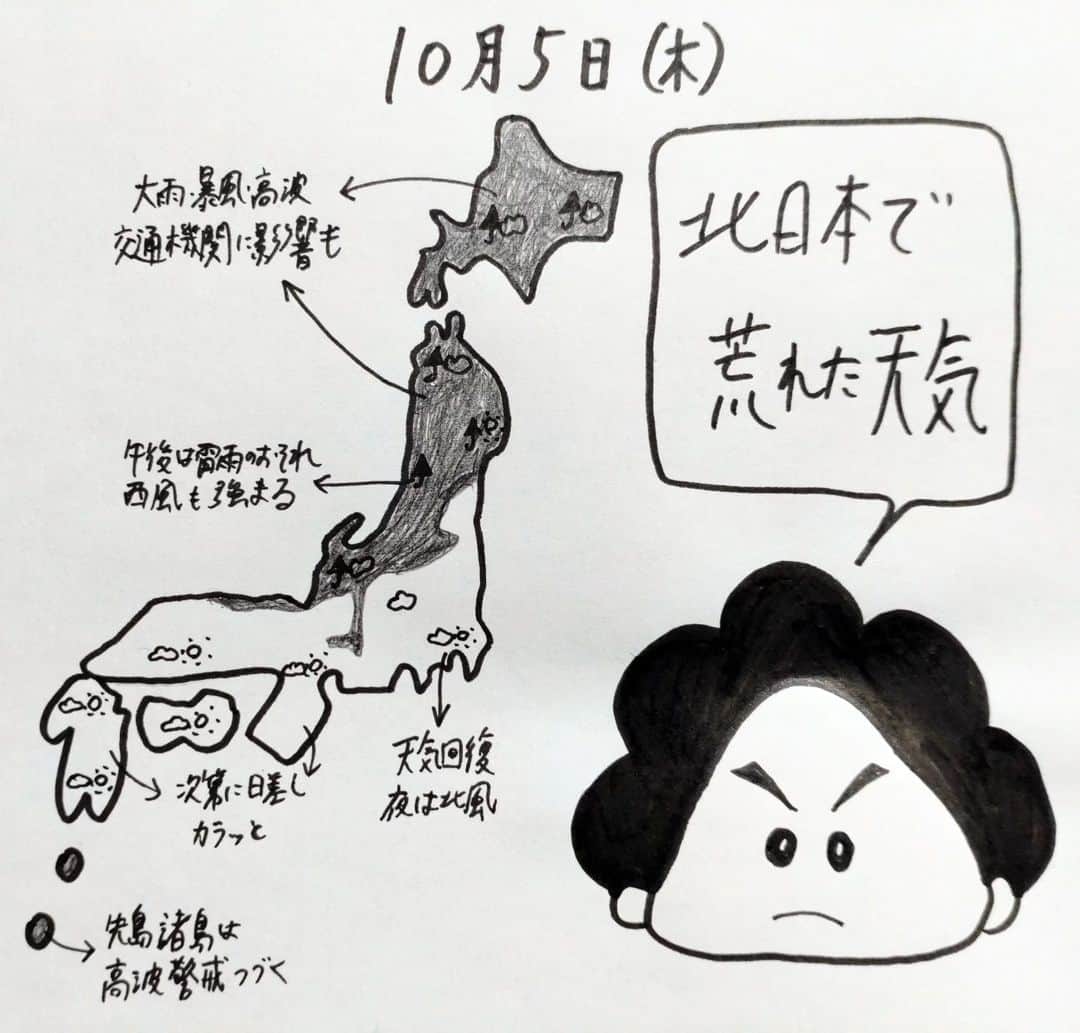 10月5日(木)
北日本で
荒れた天気
大雨・暴風・高波
交通機関に影響も
午後は雷雨のおそれ
西風も強まる
天気回復
夜は北風
次第に日差し
カラッと
先島諸島は
高波警戒つづく